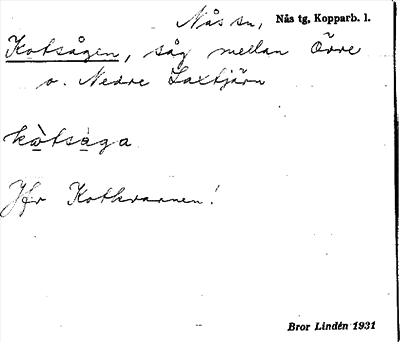 Nås sn, Nås tg, Kopparb. l.
Kotsågen, såg mellan Övre
o. Nedre Laxtjärn
kòtsàga
Jfr Kotkvarnen!
Bror Lindén 1931